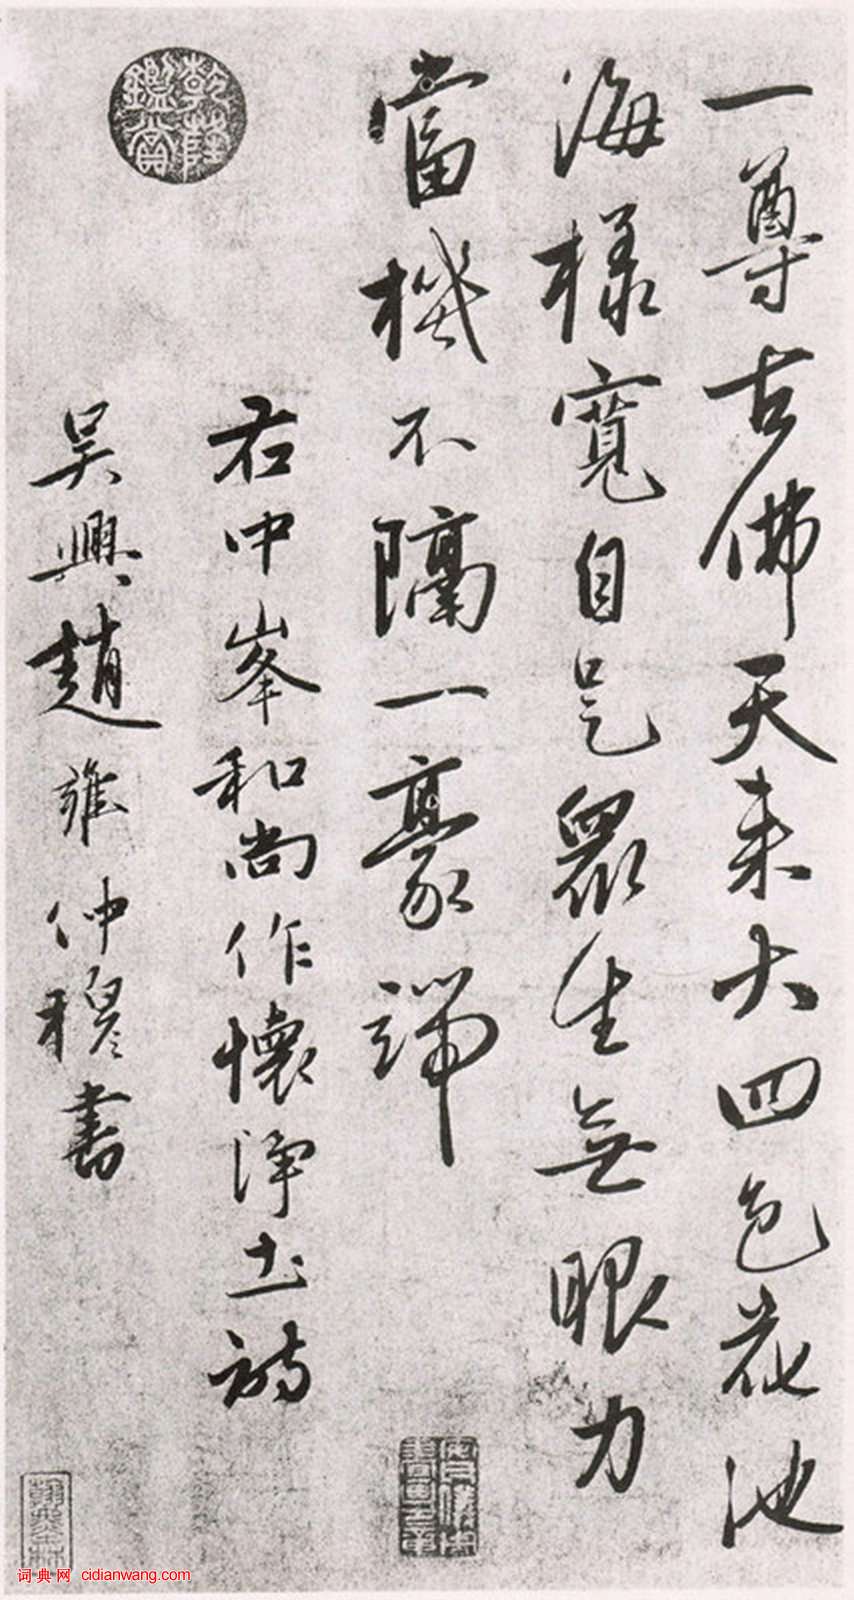 一尊古佛天来大四色花池
海樣寬自是眾生無眼力
當機不隔一豪端
右中峯和尚作懷淨土詩
吳興趙雍仲穆書
乾隆鑑賞
词典网 cidianwang.com